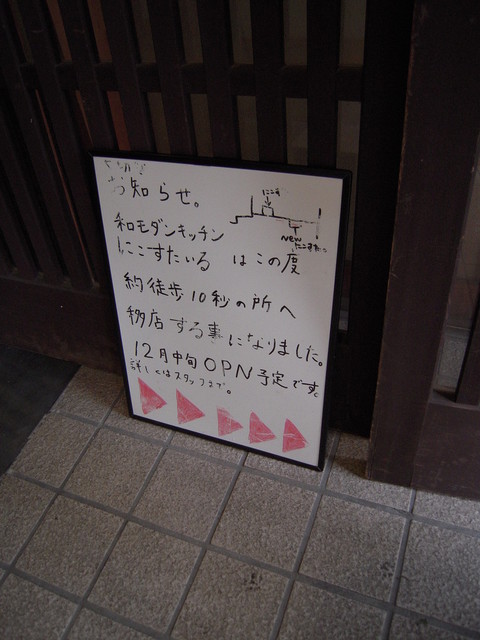 お知らせ。
ココ
NEW
和モダンキッチン
にこすたいる はこの度
約徒歩10秒の所へ
移店する事になりました。
12月中旬OPN予定です。
詳しくはスタッフまで。